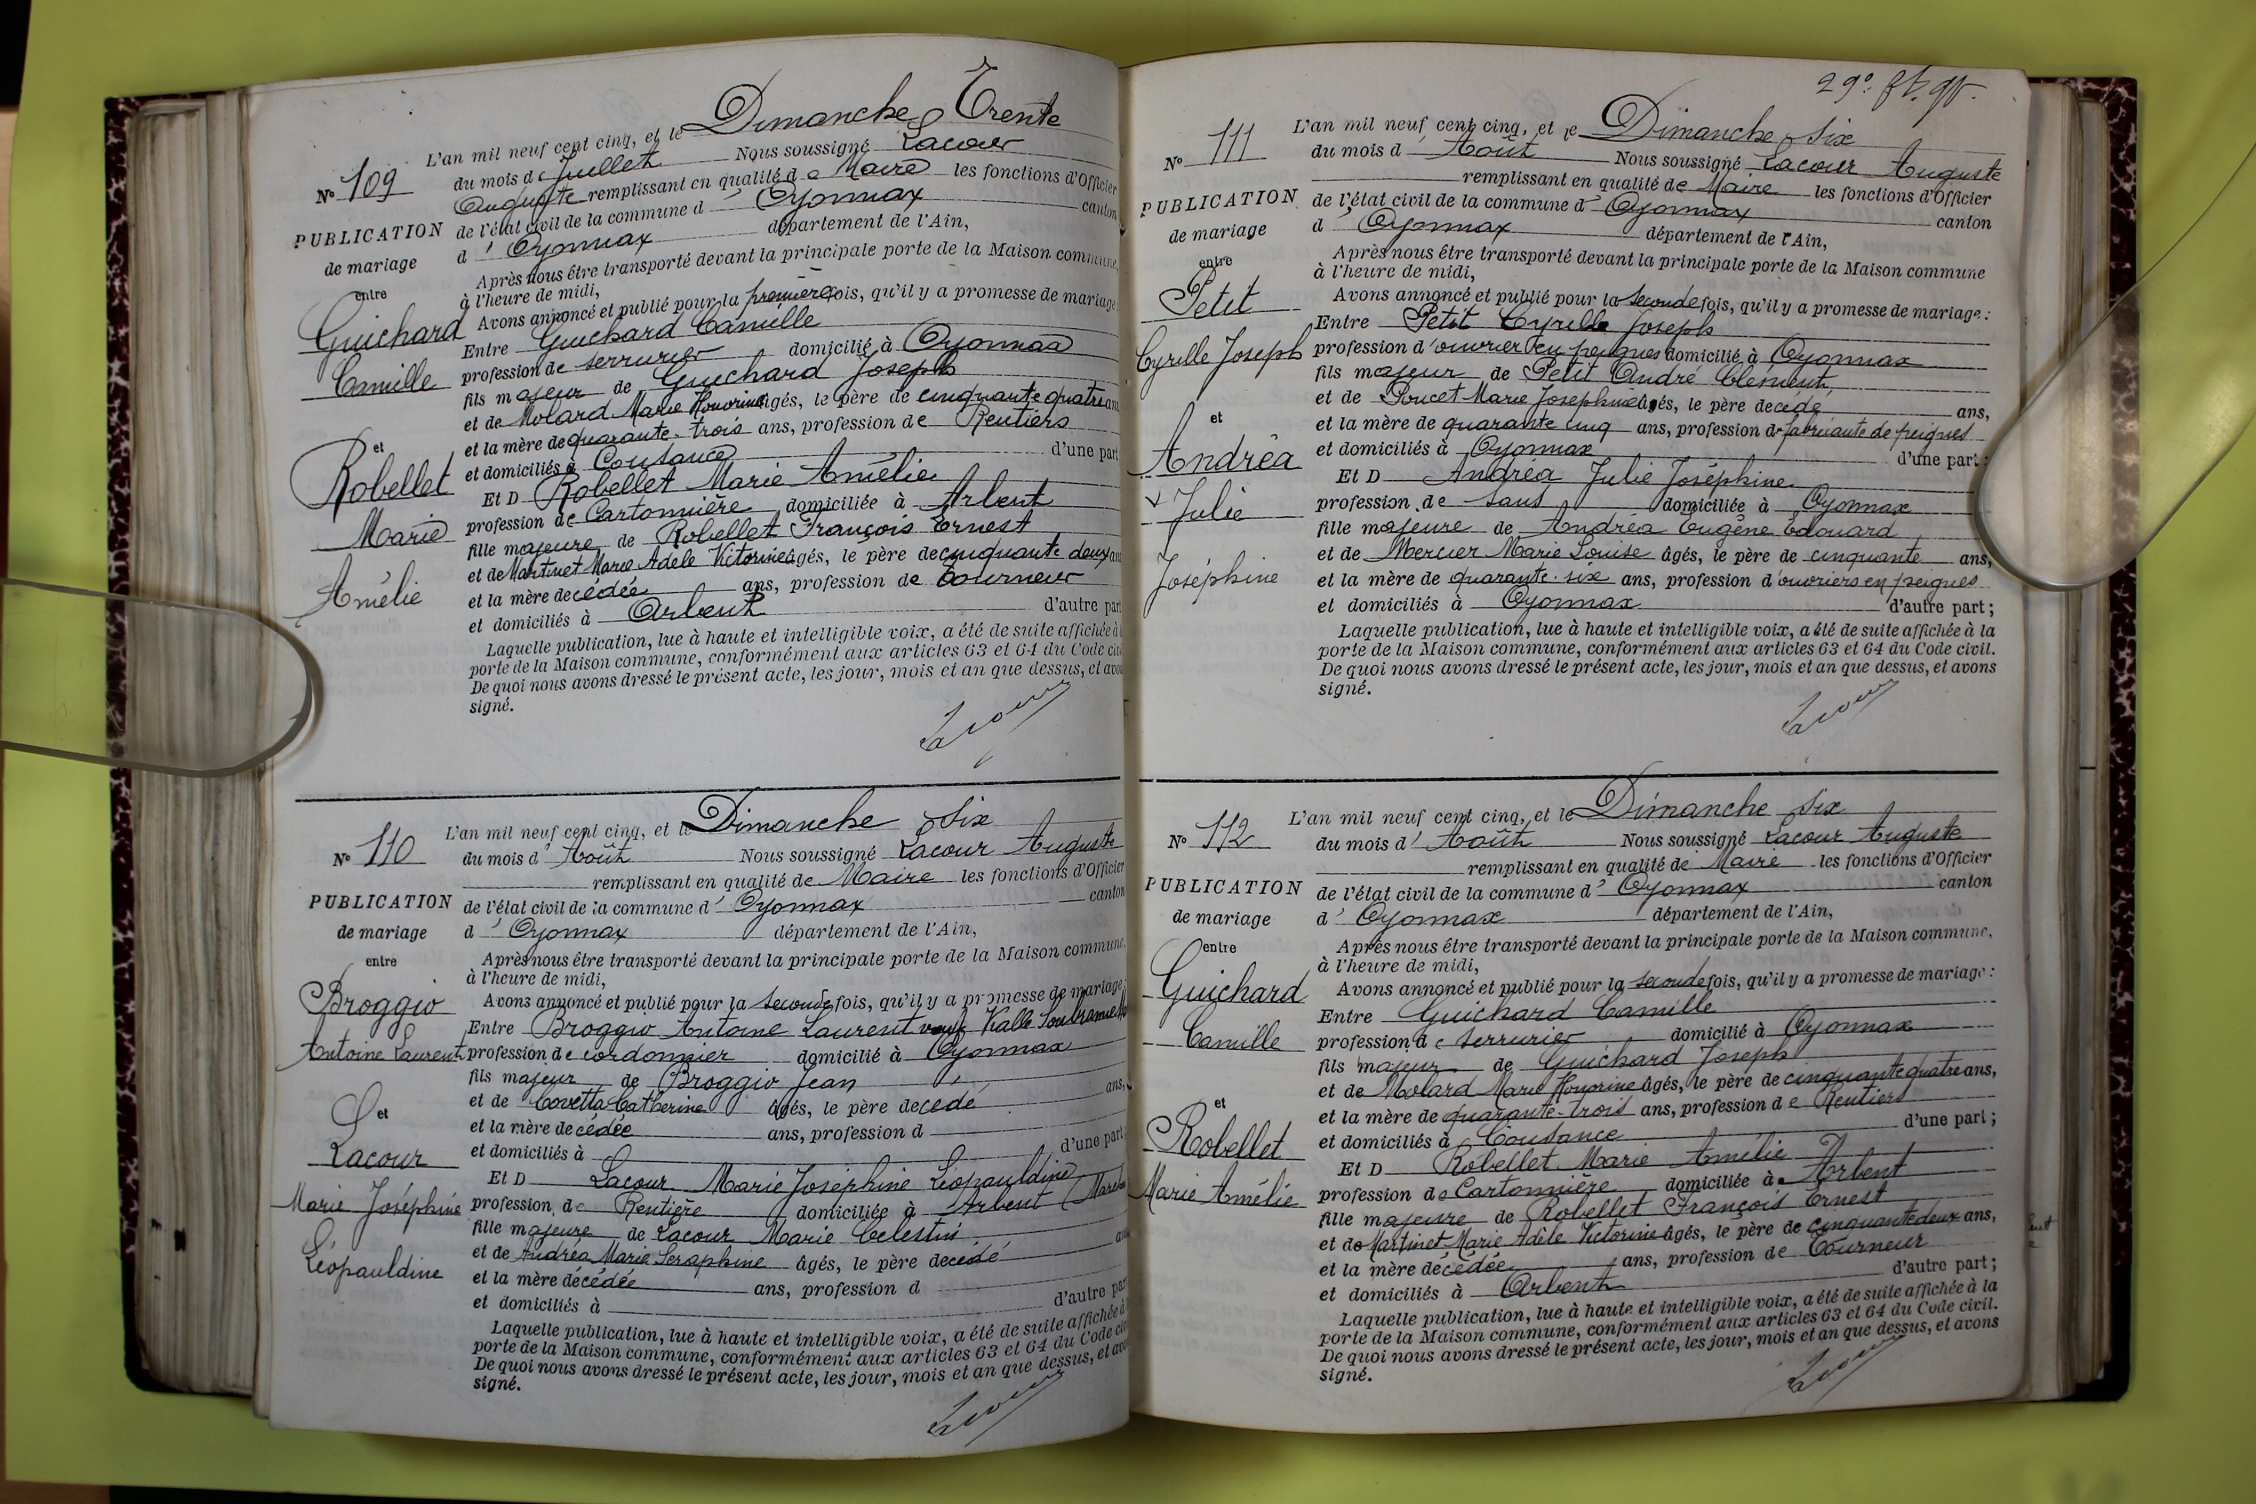 Nº 109
PUBLICATION
de mariage
entre
Guichard
Camille
et
Robellet
Marie
Amélie
L'an mil neuf cent cinq, et le Dimanche Trente
du mois de Juillet Nous soussigné Lacour
Auguste remplissant en qualité de Maire les fonctions d'Officier
de l'état civil de la commune d' Oyonnax canton
d' Oyonnax département de l'Ain,
Après nous être transporté devant la principale porte de la Maison commune,
à l'heure de midi,
Avons annoncé et publié pour la première fois, qu'il y a promesse de mariage:
Entre Guichard Camille
profession de serrurier domicilié à Oyonnax
fils majeur de Guichard Joseph
et de Molard Marie Honorine âgés, le père de cinquante quatre ans
et la mère de quarante-trois ans, profession de Rentiers
et domiciliés à Cousance d'une part
Et D Robellet Marie Amélie
profession de Cartonnière domiciliée à Arbent
fille majeure de Robellet François Ernest
et de Martinet Marie Adèle Victorine âgés, le père de cinquante deux ans
et la mère décédée ans, profession de Tourneur
et domiciliés à Arbent d'autre part
Laquelle publication, lue à haute et intelligible voix, a été de suite affichée à la
porte de la Maison commune, conformément aux articles 63 et 64 du Code civil
De quoi nous avons dressé le présent acte, les jour, mois et an que dessus, et avons
signé.
Lacour
Nº 110
PUBLICATION
de mariage
entre
Broggio
Antoine Laurent
et
Lacour
Marie Joséphine
Léopauldine
L'an mil neuf cent cinq, et le Dimanche Six
du mois d' Août Nous soussigné Lacour Auguste
remplissant en qualité de Maire les fonctions d'Officier
de l'état civil de la commune d' Oyonnax canton
d' Oyonnax département de l'Ain,
Après nous être transporté devant la principale porte de la Maison commune,
à l'heure de midi,
Avons annoncé et publié pour la seconde fois, qu'il y a promesse de mariage:
Entre Broggio Antoine Laurent veuf Vialle
profession de cordonnier domicilié à Oyonnax
fils majeur de Broggio Jean
et de Covetta Catherine âgés, le père decédé ans,
et la mère decédée ans, profession d
et domiciliés à d'une part
Et D Lacour Marie Joséphine Léopauldine
profession de Rentière domiciliée à Arbent
fille majeure de Lacour Marie Célestin
et de Andréa Marie Seraphine âgés, le père decédé ans
et la mère décédée ans, profession d
et domiciliés à d'autre part
Laquelle publication, lue à haute et intelligible voix, a été de suite affichée à
porte de la Maison commune, conformément aux articles 63 et 64 du Code civil
De quoi nous avons dressé le présent acte, les jour, mois et an que dessus, et avons
signé.
Lacour
29e
Nº 111
PUBLICATION
de mariage
entre
Petit
Cyrille Joseph
et
Andréa
Julie
Joséphine
L'an mil neuf cent cinq, et le Dimanche Six
du mois d' Août Nous soussigné Lacour Auguste
remplissant en qualité de Maire les fonctions d'Officier
de l'état civil de la commune d' Oyonnax canton
d' Oyonnax département de l'Ain,
Après nous être transporté devant la principale porte de la Maison commune
à l'heure de midi,
Avons annoncé et publié pour la seconde fois, qu'il y a promesse de mariage:
Entre Petit Cyrille Joseph
profession d'ouvrier en peignes domicilié à Oyonnax
fils majeur de Petit André Clément
et de Poucet Marie Joséphine âgés, le père decédé ans,
et la mère de quarante cinq ans, profession de fabricante de peignes
et domiciliés à Oyonnax d'une part;
Et D Andréa Julie Joséphine
profession de sans domiciliée à Oyonnax
fille majeure de Andréa Eugène Edouard
et de Mercier Marie Louise âgés, le père de cinquante ans,
et la mère de quarante-six ans, profession d'ouvriers en peignes
et domiciliés à Oyonnax d'autre part;
Laquelle publication, lue à haute et intelligible voix, a été de suite affichée à la
porte de la Maison commune, conformément aux articles 63 et 64 du Code civil.
De quoi nous avons dressé le présent acte, les jour, mois et an que dessus, et avons
signé.
Lacour
Nº 112
PUBLICATION
de mariage
entre
Guichard
Camille
et
Robellet
Marie Amélie
L'an mil neuf cent cinq, et le Dimanche Six
du mois d' Août Nous soussigné Lacour Auguste
remplissant en qualité de Maire les fonctions d'Officier
de l'état civil de la commune d' Oyonnax canton
d' Oyonnax département de l'Ain,
Après nous être transporté devant la principale porte de la Maison commune,
à l'heure de midi,
Avons annoncé et publié pour la seconde fois, qu'il y a promesse de mariage:
Entre Guichard Camille
profession de serrurier domicilié à Oyonnax
fils majeur de Guichard Joseph
et de Molard Marie Honorine âgés, le père de cinquante quatre ans,
et la mère de quarante-trois ans, profession de Rentiers
et domiciliés à Cousance d'une part;
Et D Robellet Marie Amélie
profession de Cartonnière domiciliée à Arbent
fille majeure de Robellet François Ernest
et de Martinet Marie Adèle Victorine âgés, le père de cinquante deux ans,
et la mère décédée ans, profession de Tourneur
et domiciliés à Arbent d'autre part;
Laquelle publication, lue à haute et intelligible voix, a été de suite affichée à la
porte de la Maison commune, conformément aux articles 63 et 64 du Code civil.
De quoi nous avons dressé le présent acte, les jour, mois et an que dessus, et avons
signé.
Lacour